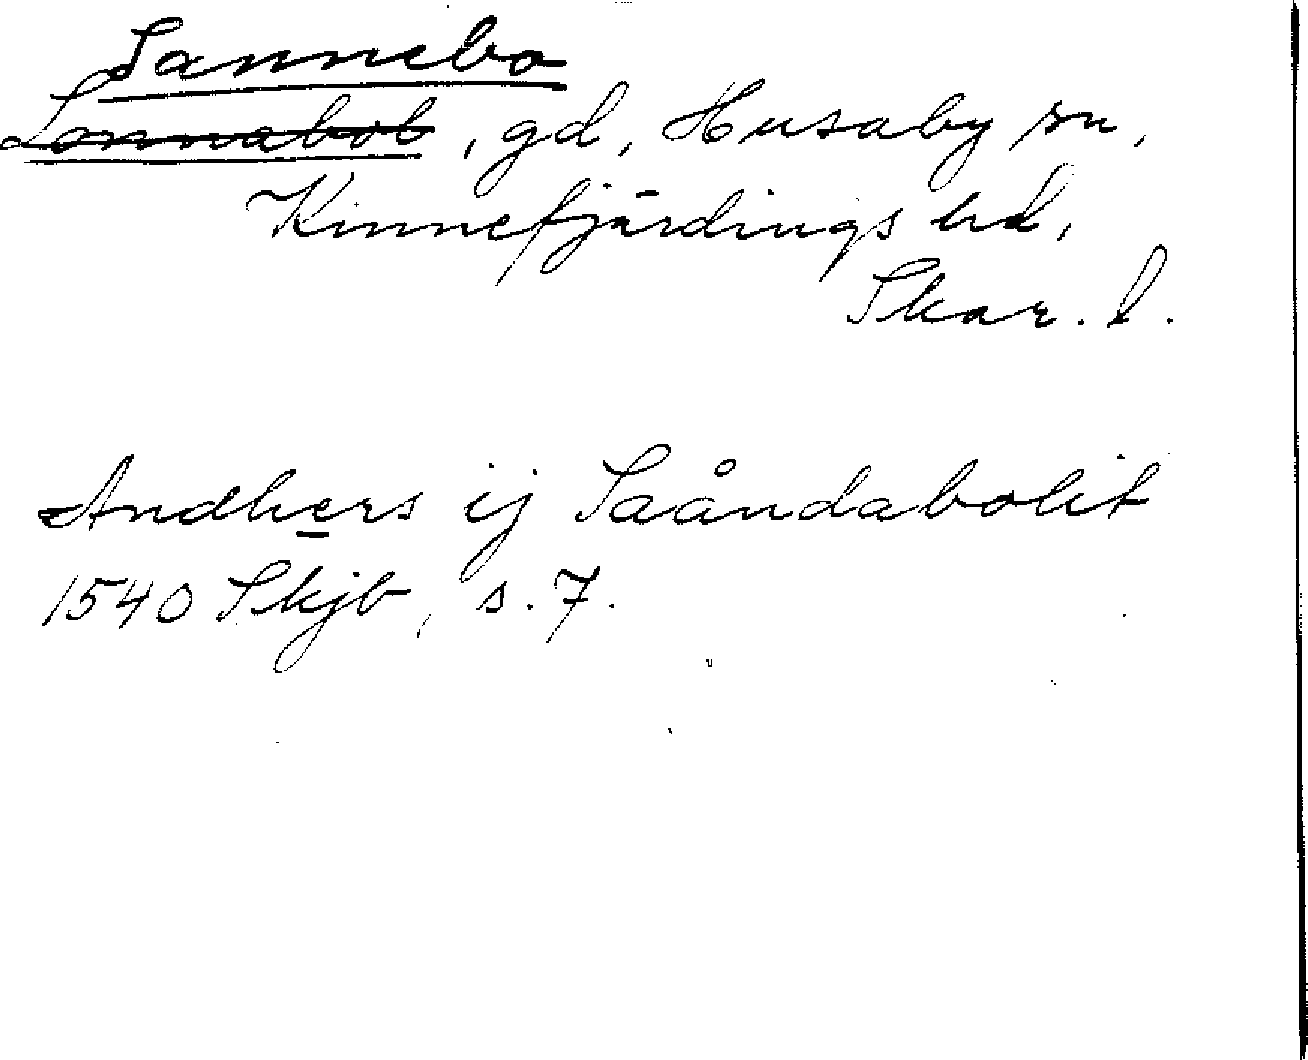 Sannebo
Sonnabol, gd, Husaby sn,
Kinnefjärdings hd,
Skar. l.
Andhers ij Saåndabolit
1540 Skjb, s. 7.